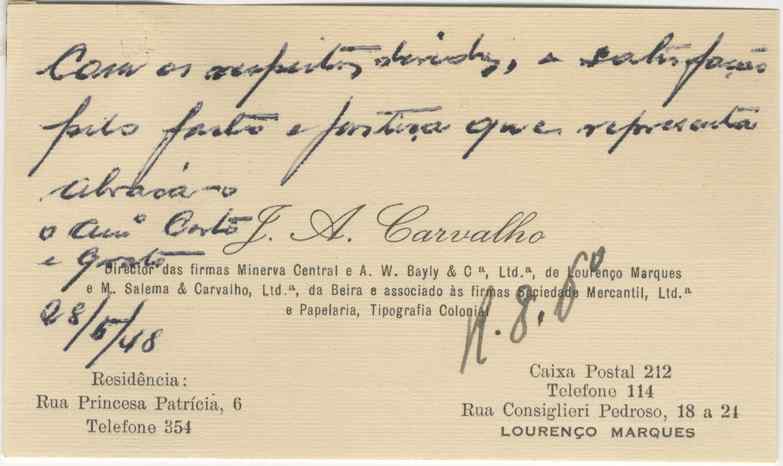 Com os respeitos devidos, e satisfação
pelo facto e justiça que representa
abraça-o
o am.º Certo
e grato
J. A. Carvalho
Director das firmas Minerva Central e A. W. Bayly & C.ª, Ltd.ª, de Lourenço Marques
e M. Salema & Carvalho, Ltd.ª, da Beira e associado às firmas Sociedade Mercantil, Ltd.ª
e Papelaria, Tipografia Colonial
28/5/48
Residência:
Rua Princesa Patrícia, 6
Telefone 354
Caixa Postal 212
Telefone 114
Rua Consiglieri Pedroso, 18 a 24
LOURENÇO MARQUES